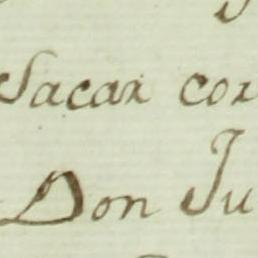 Sacar cor
Don Ju